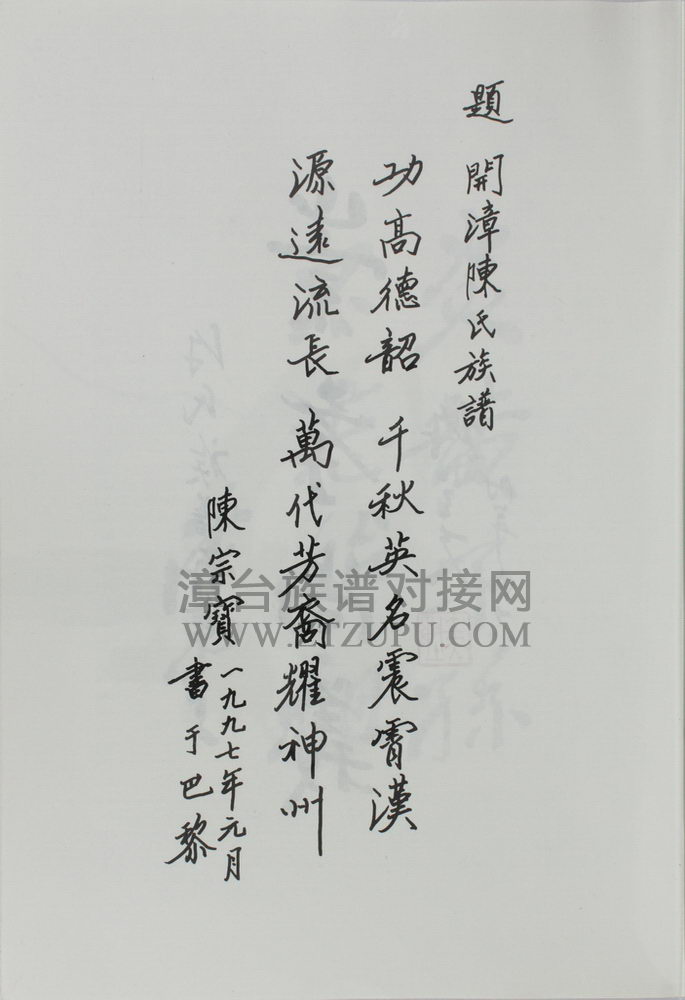 題 開漳陳氏族譜
功高德韶 千秋英名震霄漢
源遠流長 萬代芳裔耀神州
陳宗寶
一九九七年元月
書于巴黎
漳台族谱对接网
WWW.ZTZUPU.COM